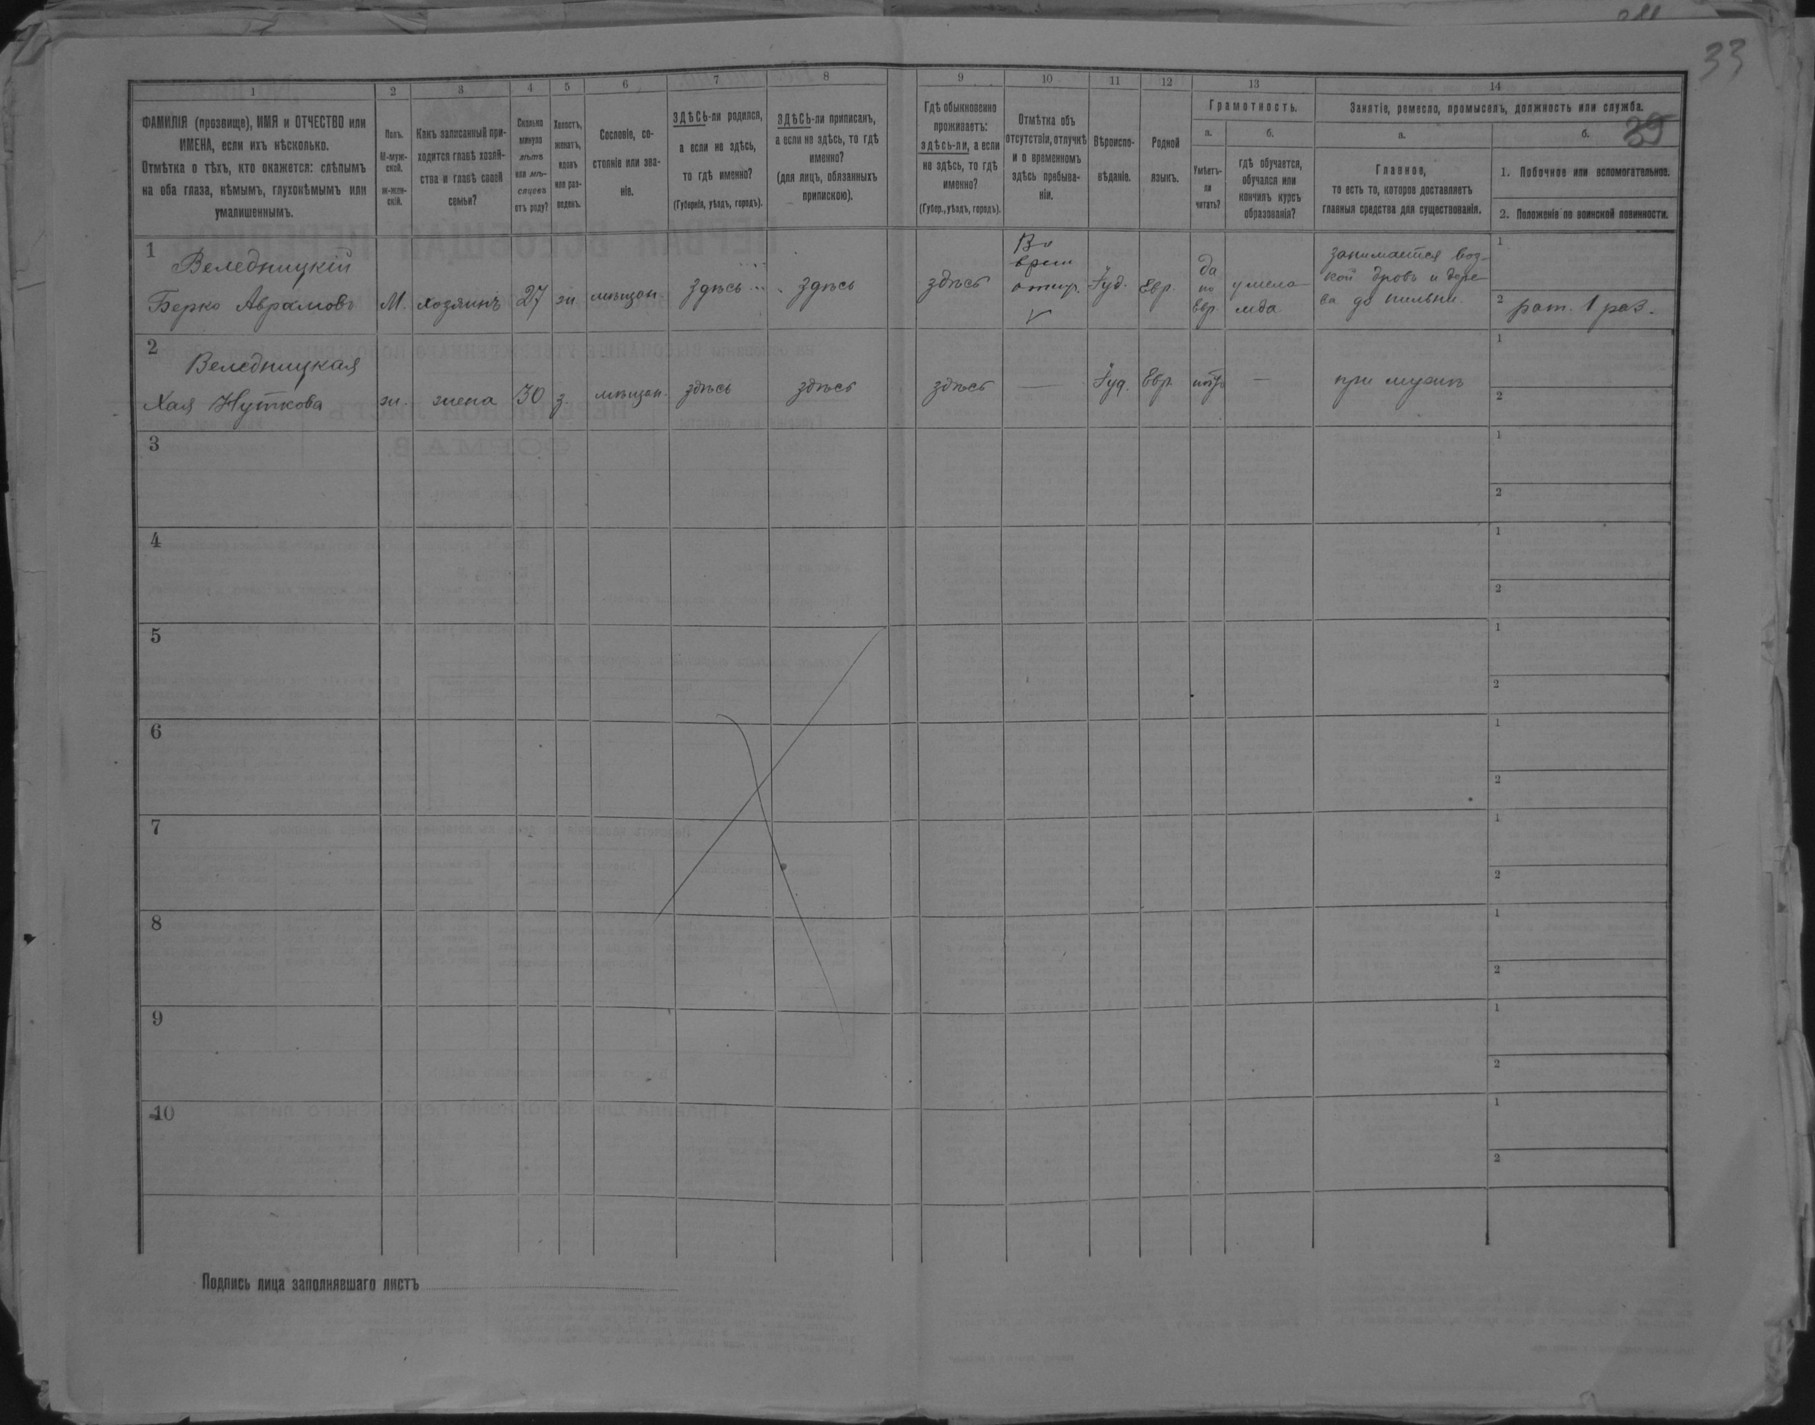 33
39
1 2 3 4 5 6 7 8 9 10 11 12 13 14
ФАМИЛІЯ (прозвище), ИМЯ и ОТЧЕСТВО или
ИМЕНА, если ихъ нѣсколько.
Отмѣтка о тѣхъ, кто окажется: слѣпымъ
на оба глаза, нѣмымъ, глухонѣмымъ или
умалишеннымъ.
Полъ.
М-муж-
ской.
ж-жен-
скій.
Какъ записанный при-
ходится главѣ хозяй-
ства и главѣ своей
семьи?
Сколько
минуло
лѣтъ
или мѣ-
сяцевъ
отъ роду?
Холостъ,
женатъ,
вдовъ
или раз-
веденъ.
Сословіе, со-
стояніе или зва-
ніе.
ЗДѢСЬ-ли родился,
а если не здѣсь,
то гдѣ именно?
(Губернія, уѣздъ, городъ).
ЗДѢСЬ-ли приписанъ,
а если не здѣсь, то гдѣ
именно?
(для лицъ, обязанныхъ
припискою).
Гдѣ обыкновенно
проживаетъ:
здѣсь-ли, а если
не здѣсь, то гдѣ
именно?
(Губер., уѣздъ, городъ).
Отмѣтка объ
отсутствіи, отлучкѣ
и о временномъ
здѣсь пребыва-
ніи.
Вѣроиспо-
вѣданіе.
Родной
языкъ.
Грамотность.
а.
Умѣетъ-
ли
читать?
б.
гдѣ обучается,
обучался или
кончилъ курсъ
образованія?
Занятіе, ремесло, промыселъ, должность или служба.
а.
Главное,
то есть то, которое доставляетъ
главныя средства для существованія.
б.
1. Побочное или вспомогательное.
2. Положеніе по воинской повинности.
1
Веледницкій
Берко Аврамовъ М. хозяинъ 27 ж. мѣщан. здѣсь здѣсь здѣсь
Во
врем
отлуч.
Іуд. Евр.
да
по
Евр.
у мела-
мда
занимается воз-
кой дровъ и дере-
ва до пильни
1
2 рат. 1 раз.
2
Веледницкая
Хая Нуткова ж. жена 30 з. мѣщан. здѣсь здѣсь здѣсь — Іуд. Евр. нѣтъ — при мужѣ
1
2
3
1
2
4
1
2
5
1
2
6
1
2
7
1
2
8
1
2
9
1
2
10
1
2
Подпись лица заполнявшаго листъ